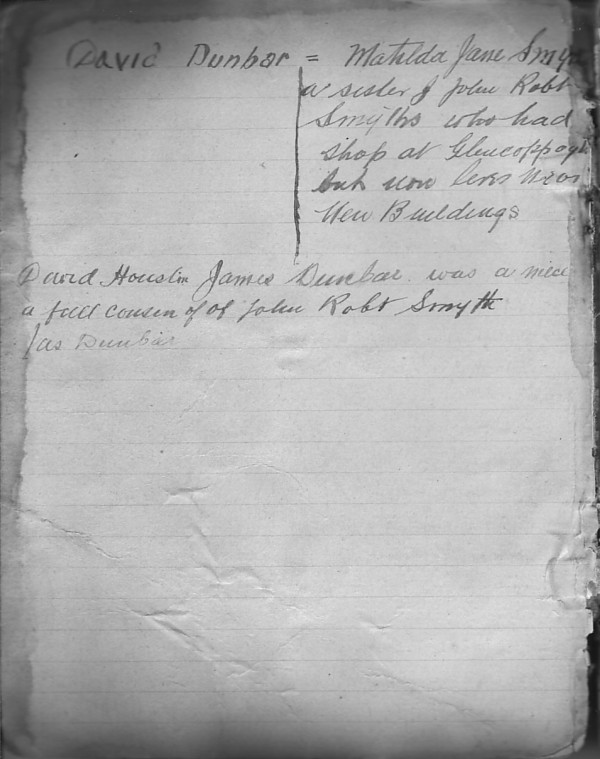 David Dunbar = Matilda Jane Smyth
a sister of John Robt
Smyths who had
shop at Glencoppogh
but now lives near
New Buildings
David Houston James Dunbar was a niece
a full cousin of of John Robt Smyth
Jas Dunbar